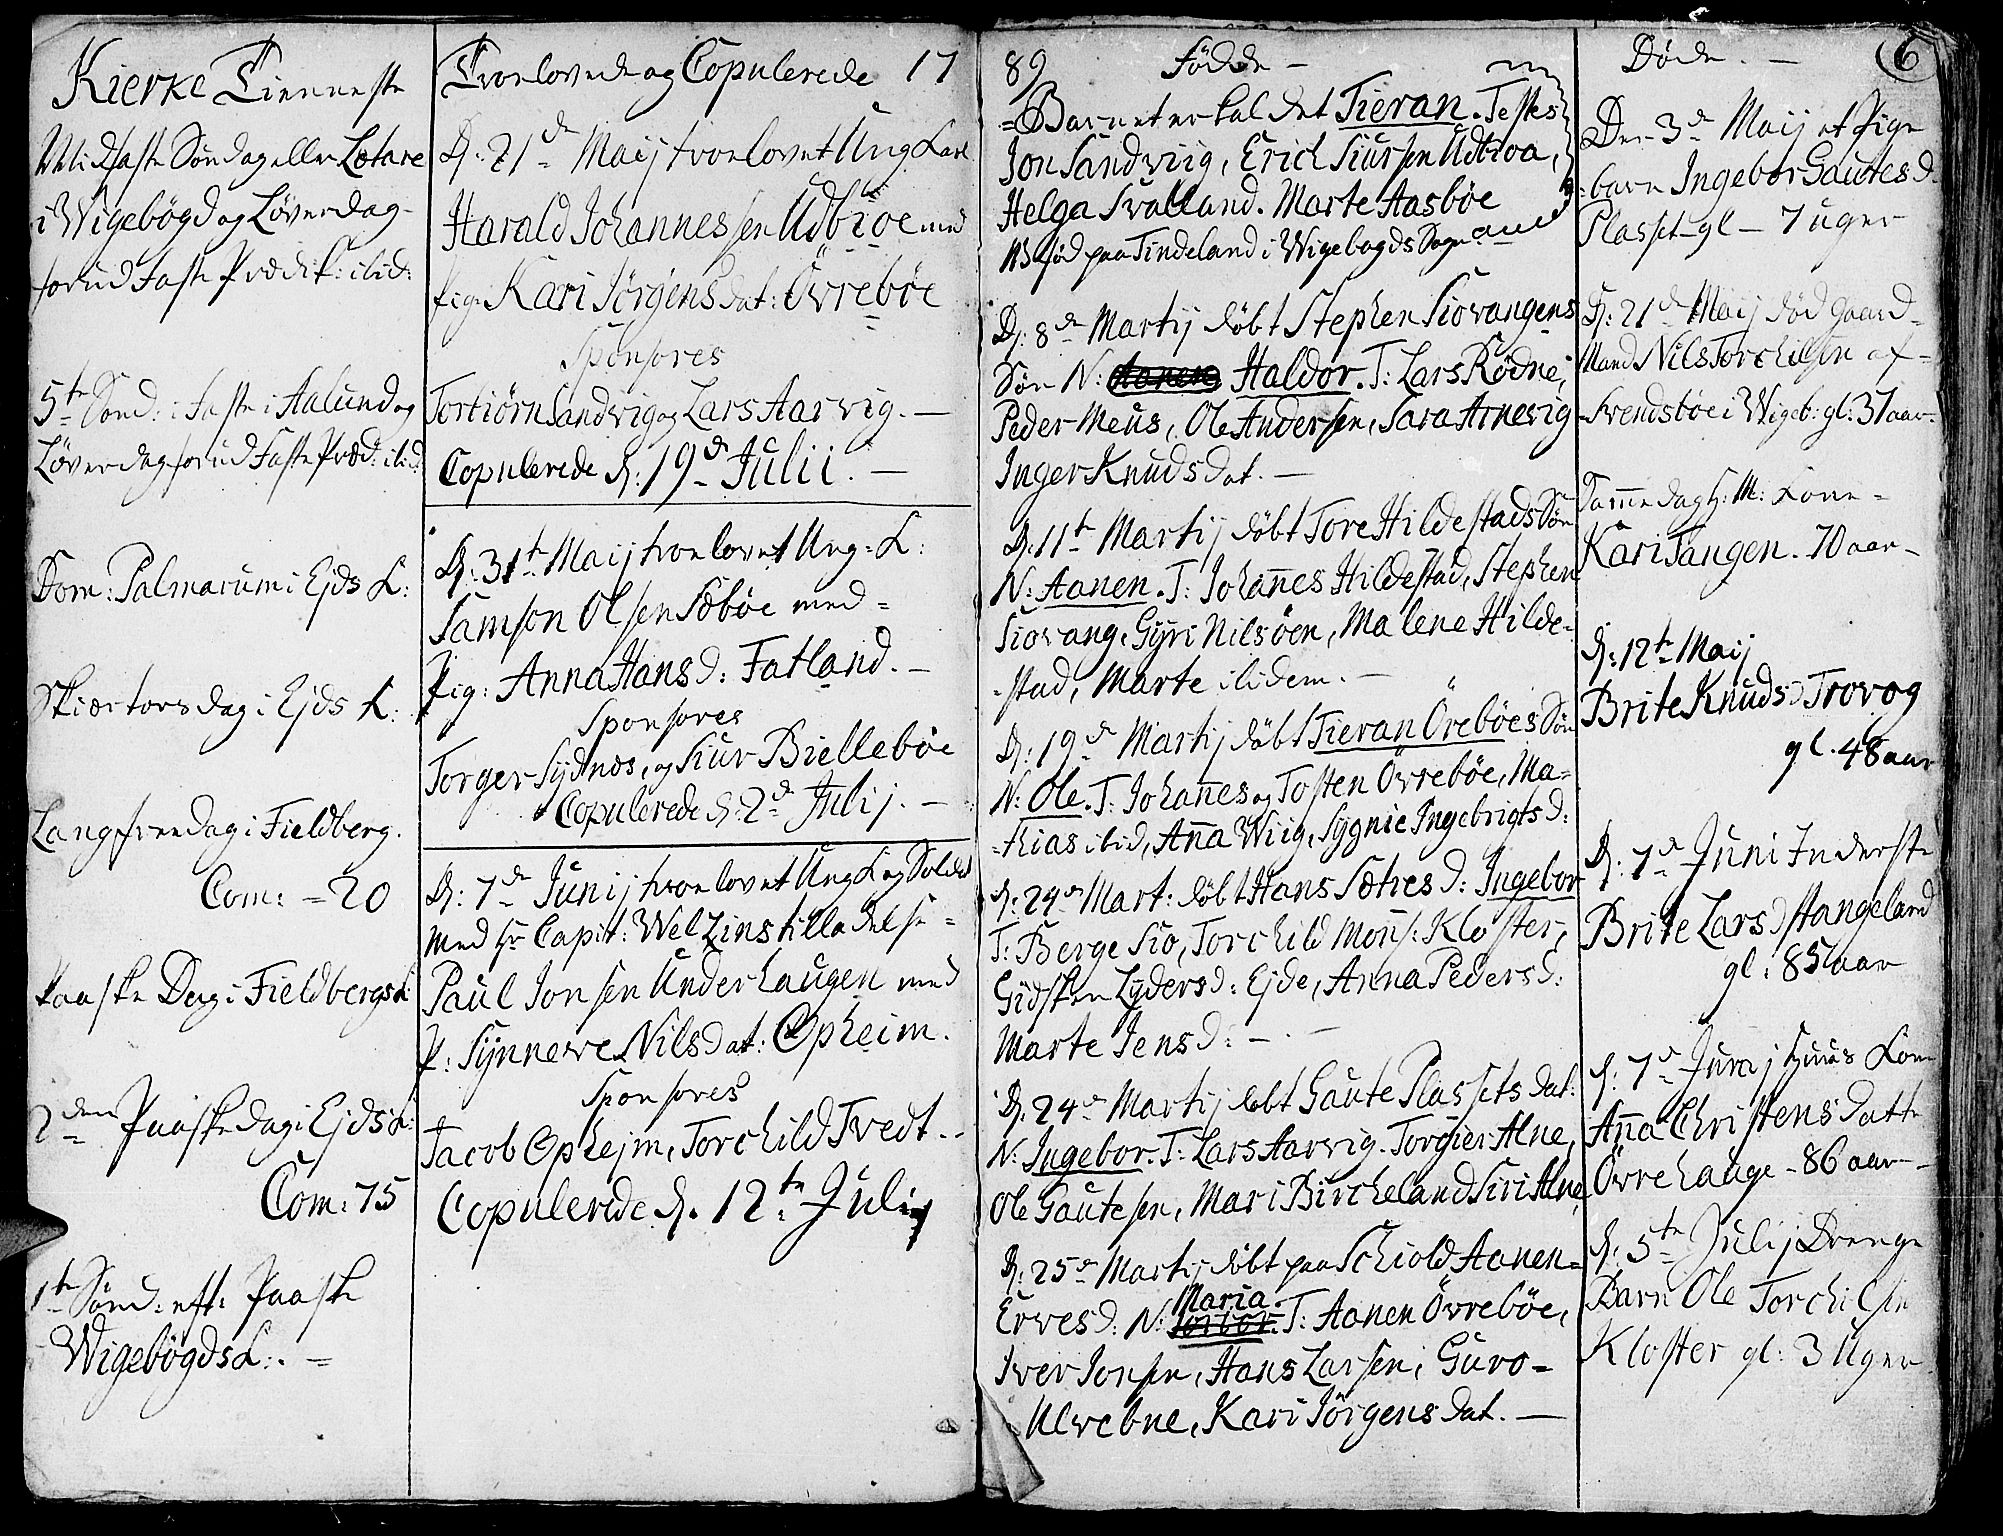 Kierke Tienneste
Midfaste Søndag eller Lætare
i Wigebøgd og Løverdag
forud Faste Prædik: ibid:
5te Sönd: i Faste i Aalund og
Löverdag forud Faste Præd: ibid:
Dom: Palmarum i Ejds K:
Skiærtorsdag i Ejds K:
Langfreedag i Fieldberg.
Com: = 20
Paaske Dag i Fieldbergs K:
2den Paaskedag i Ejds K:
Com: 75
1te Sönd: eft: Paaske
Wigebøgds K: . =
Troelovede og Copulerede 17
D: 21de Maij troelovet Ung Karl
Harald Johannessen Udbiöe med
Pig: Kari Jörgensdat: Övreböe
Sponsores
Torbiörn Sandvig og Lars Aarvig. —
Copulerede d: 19de Julii. —
D: 31te Maij troelovet Ung: K:
Samson Olsen Sæböe med =
Pig: Anna Hansd: Fatland. —
Sponsores
Torger Sydnæs, og Siur Bielleböe
Copulerede d: 2de Julij. —
D: 7de Junij troelovet Ung K og Soldat
med Hr Capit: Welzins tilladelse =
Paul Jonsen Underhaugen med
P: Synneve Nilsdat: Opheim.
Sponsores
Jacob Ophejm, Torchild Tvedt. -
Copulerede d. 12te Julij
89 Födde —
= Barnet er kaldet Tieran. Testes
Jon Sandvig, Erich Siursen Udbioa,
Helga Svalland. Marte Aasböe
NB født paa Tindeland i Wigebøgds Sogn
D: 8de Martij döbt Stephen Siovangens
Sön N: Haldor. T: Lars Rødne,
Peder Meus, Ole Andersen, Sara Arnevig
Inger Knudsdat. —
D: 11te Martij döbt Tore Hildestads Sön
N: Aanen. T: Johanes Hildestad, Stephen
Siovang, Gyri Nilsöen, Malene Hilde=
=stad, Marte ibidem. —
D: 19de Martij döbt Tieran Örebøes Sön
N: Ole. T: Johanes og Tosten Övreböe, Ma=
=thias ibid, Ana Wiig, Sygnie Ingebrigtsd:
d: 24de Mart: döbt Hans Sætres d: Ingebor
T: Berge Sio, Torchild Mons: Kloster,
Gidsken Lydersd: Ejde, Anna Pedersd:
Marte Jensd: — . —
D. 24de Martij döbt Gaute Plassets dat:
N: Ingebor. T: Lars Aarvig. Torgier Alne,
Ole Gautesen, Mari Bircheland Siri Alne,
D: 25de Martij döbt paa Schiold Aanen=
Maria.
Erves d: N: T: Aanen Övreböe,
Iver Jonsen, Hans Larsen, Guro=
Ulvebne, Kari Jörgensdat. —
Døde. — 6
Den 3de Maij et Pige
=barn Ingebor Gautesd.
Plasset — gl — 7 uger
D: 21de Maij död Gaard=
Mand Nils Torchilsen af=
Svendsböe i Wigeb: gl: 37 aar.
Same dag H: M: Kone =
Kari Tangen. 70 aar —
d: 12te Maij
Brite Knudsd Trovog
gl. 48 aar
D: 7de Juni Inderste
Brite Larsd Stangeland
gl: 85 aar
d: 7de Junij Huus Kone
Ana Christens datte
Övrehauge — 86 aar —
d: 5te Julij Drenge
Barn Ole Torchilsen
Kloster gl: 3 Uger